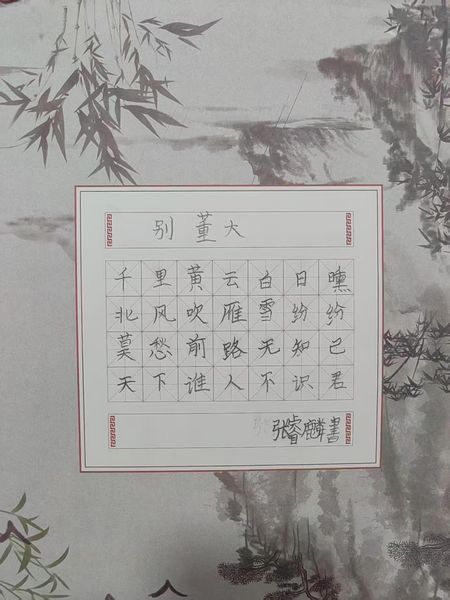 别董大
千里黄云白日曛
北风吹雁雪纷纷
莫愁前路无知己
天下谁人不识君
张睿麟書